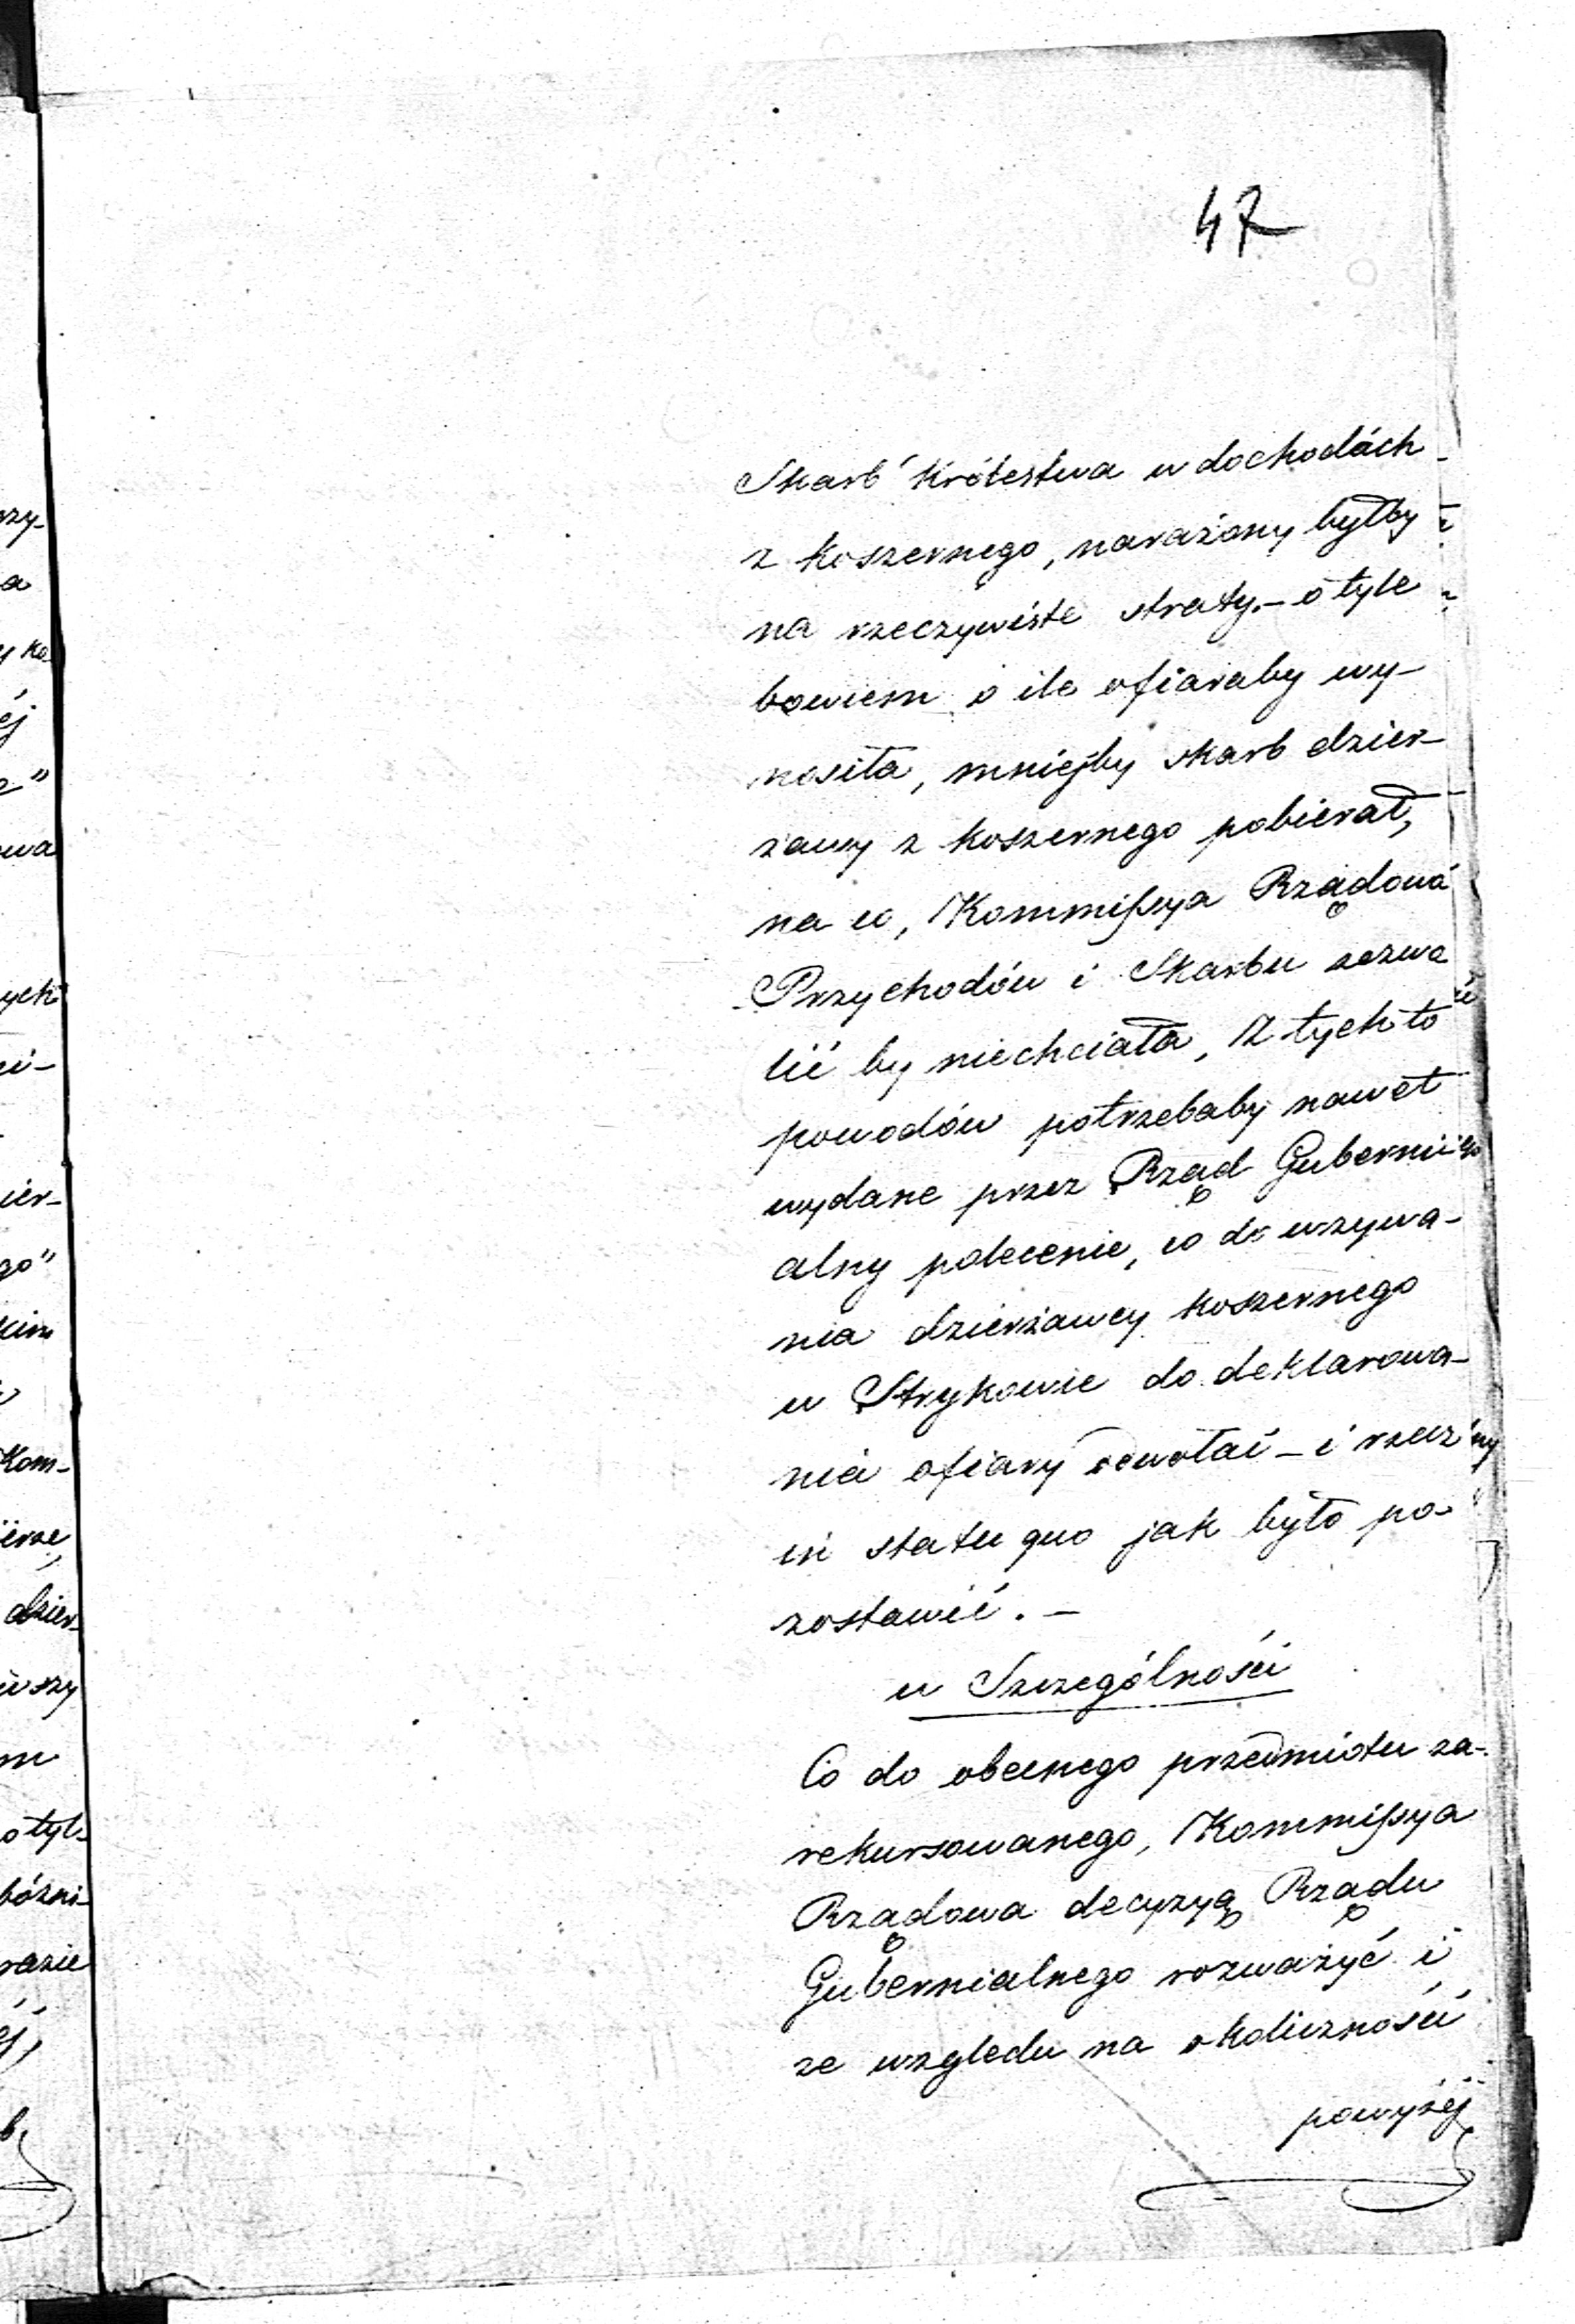 47
Skarb Królestwa w dochodach
z koszernego, narażony byłby
na rzeczywiste straty. – o tyle
bowiem o ile ofiaraby wy-
nosiła, mniejby skarb dzier-
żawy z koszernego pobierał,
na co, Kommissya Rządowa
Przychodów i Skarbu zezwo
lić by niechciała, Z tych to
powodów potrzebaby nawet
wydane przez Rząd Guberni-
alny polecenie, co do wzywa-
nia dzierżawcy koszernego
w Strykowie do deklarowa-
nia ofiary odwołać – i rzecz
in statu quo jak było po-
zostawić. –
w Szczególności
Co do obecnego przedmiotu za-
rekursowanego, Kommissya
Rządowa decyzyą Rządu
Gubernialnego rozważyć i
ze względu na okoliczności
powyżéj